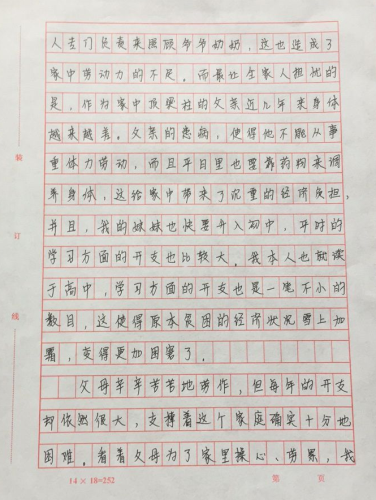 人去们负责来照顾爷爷奶奶，这也造成了
家中劳动力的不足。而最让全家人担忧的
是，作为家中顶梁柱的父亲近几年来身体
越来越差。父亲的患病，使得他不能从事
重体力劳动，而且平日里也要靠药物来调
养身体，这给家中带来了沉重的经济负担，
并且，我的妹妹也快要升入初中，开时的
学习方面的开支也比较大，我本人也就读
于高中，学习方面的开支也是一笔不小的
数目，这使得原本贫困的经济状况雪上加
霜，变得更加困窘了。
父母辛辛苦苦地劳作，但每年的开支
却依然很大，支撑着这个家庭确实十分地
困难。看着父母为了家里操心、劳累，我
装
订
线
14×18=252
第 页